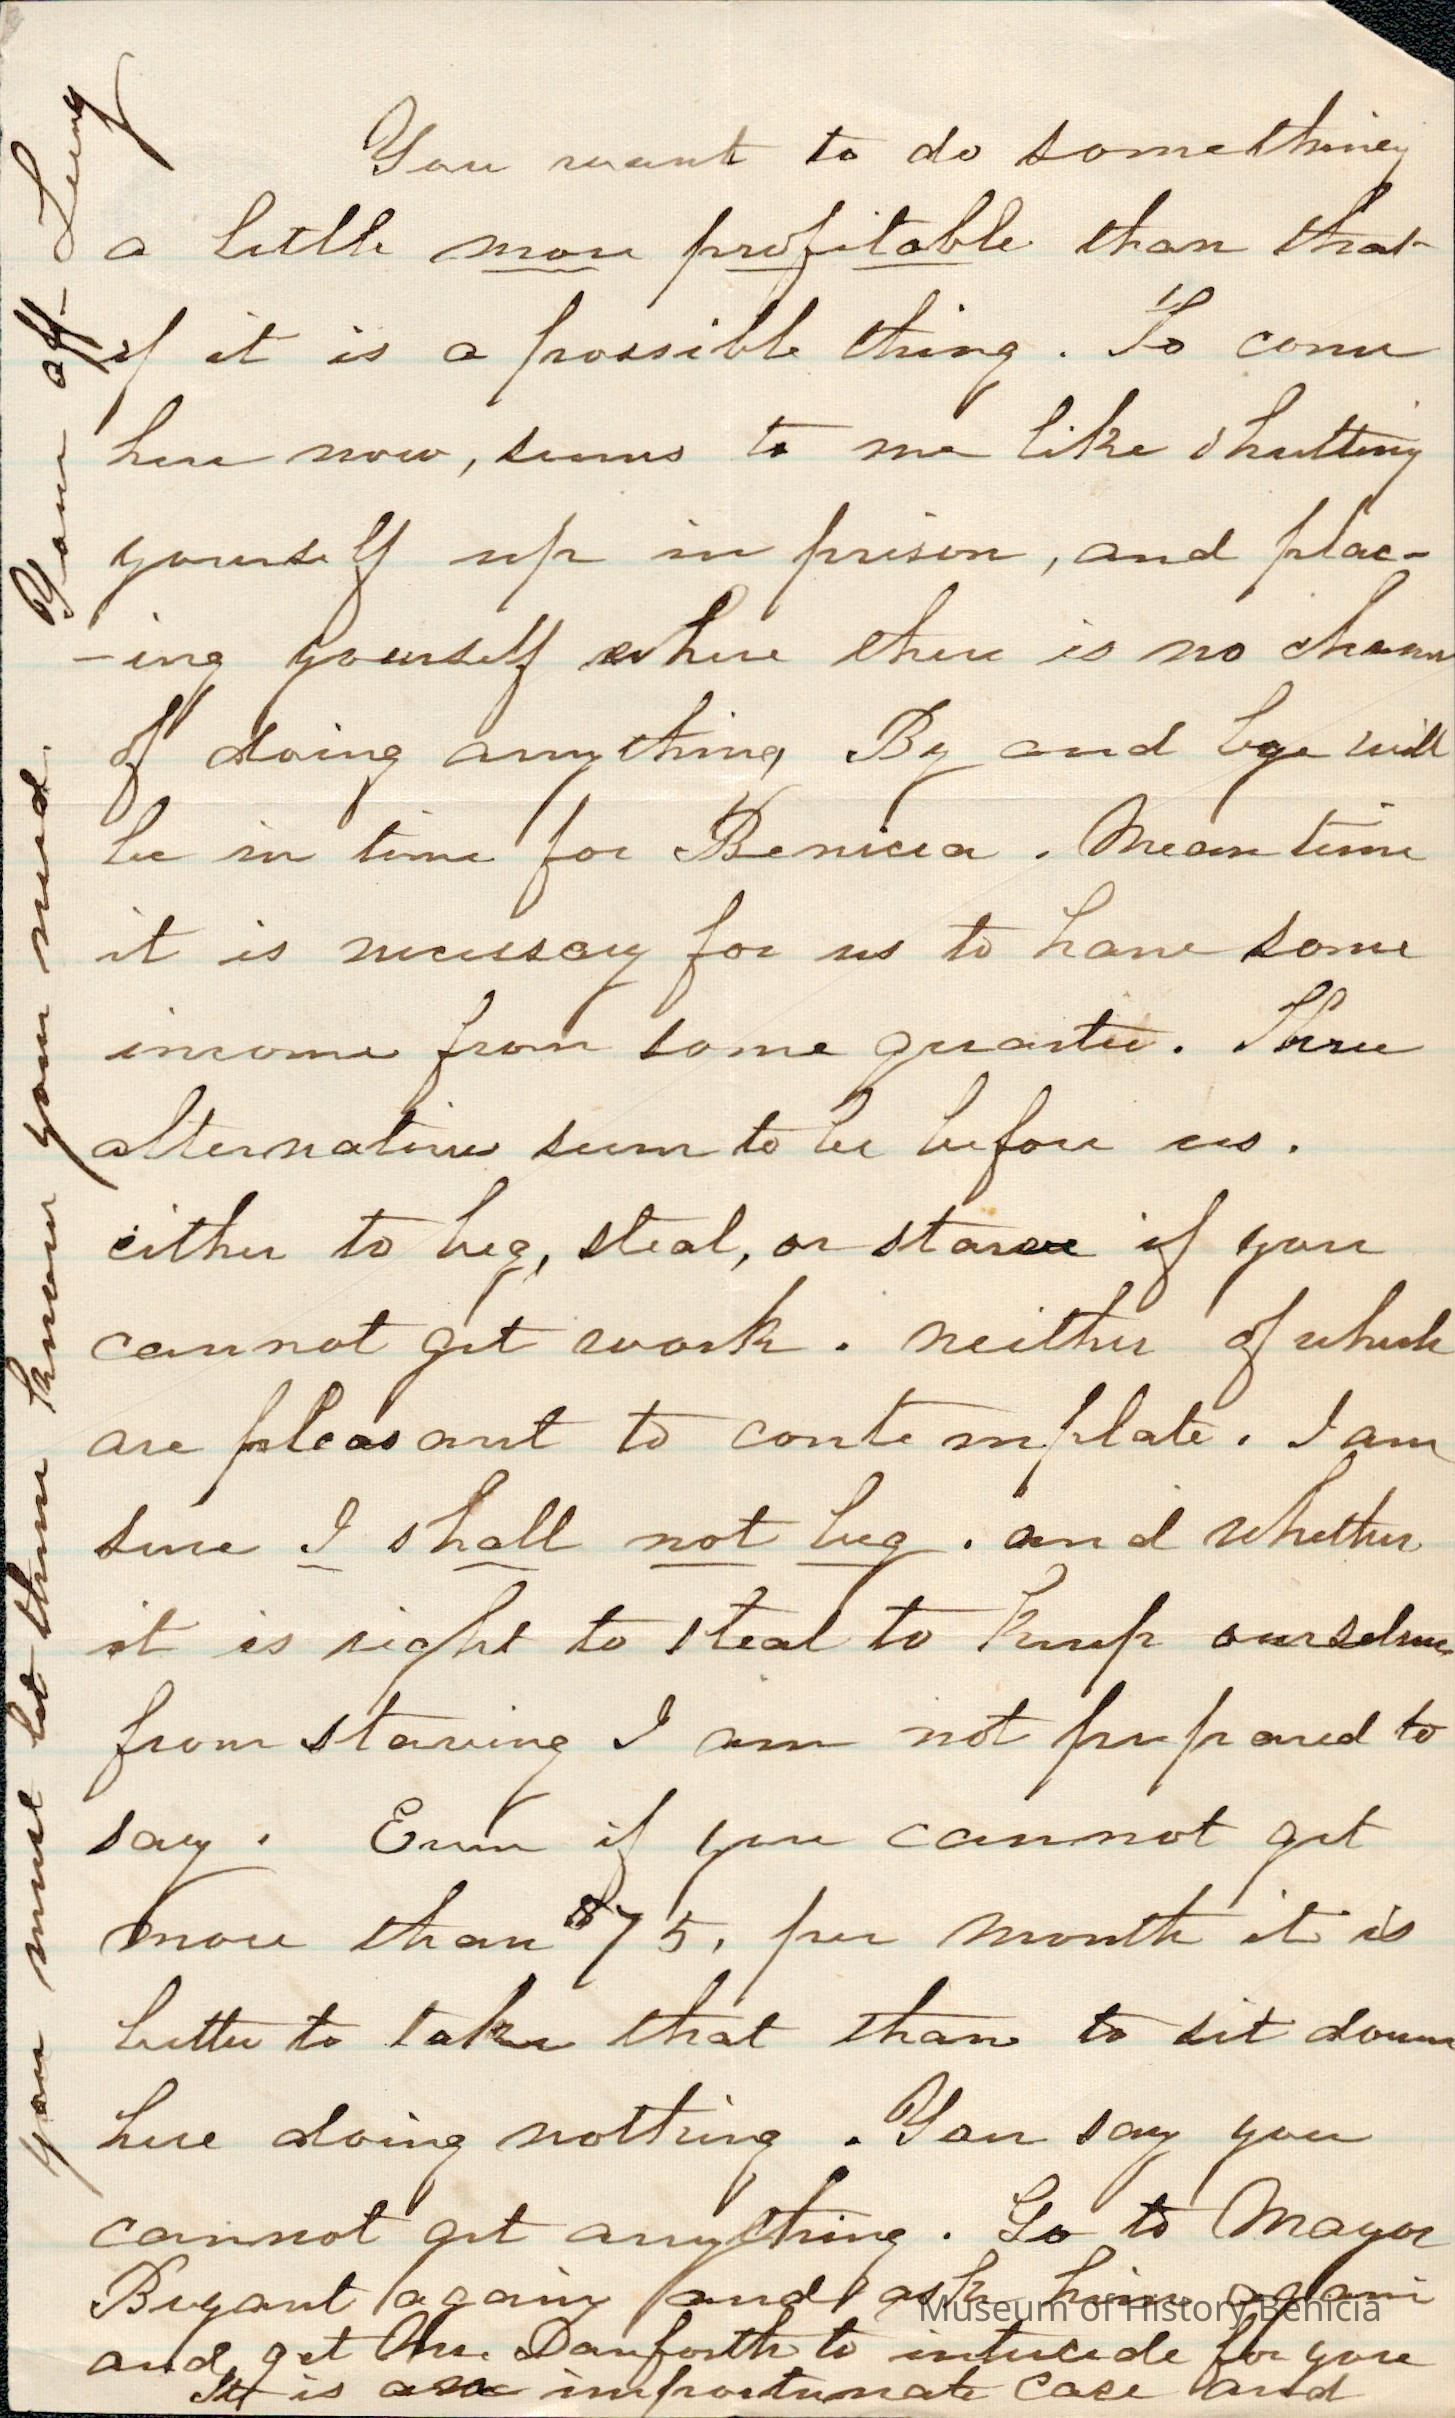 You want to do something
a little more profitable than that
if it is a possible thing. To come
here now, seems to me like shutting
yourself up in prison, and plac-
-ing yourself where there is no chance
of doing anything By and bye will
be in time for Benicia. Meantime
it is necessay for us to have some
income from some quarter. Three
alternatives seem to be before us.
either to beg, steal, or starve if you
cannot get work. neither of which
are pleasant to contemplate. I am
sure I shall not beg. and whether
it is right to steal to keep ourselves
from starving I am not prepared to
say. Even if you cannot get
more than $75. per month it is
better to take that than to sit down
here doing nothing. You say you
cannot get anything. Go to Mayor
Bryant again and ask him again
and get Mr. Danforth to intercede for you
It is an importunate case and
you must let them know your need. Your aff- Lucy
Museum of History Benicia